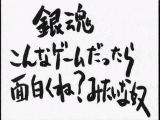 銀魂
こんなゲームだったら
面白くね?みたいな奴